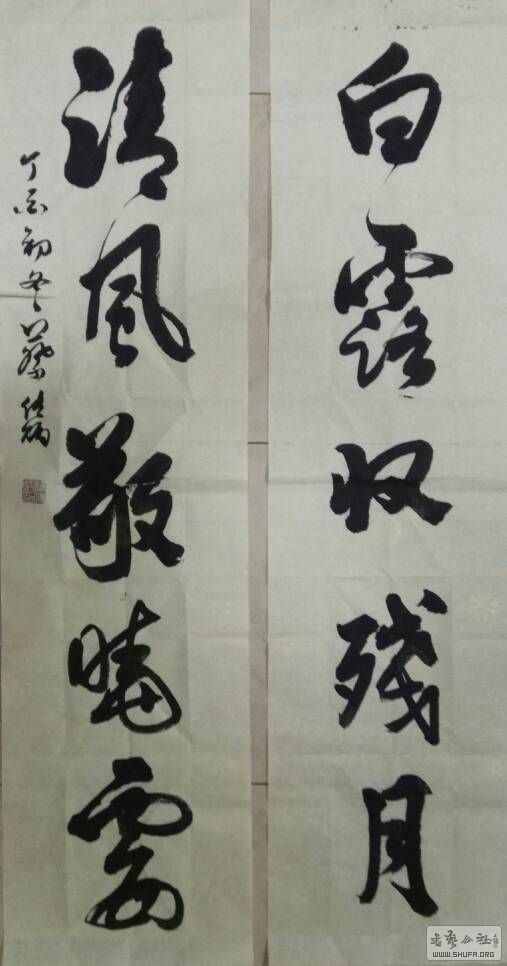 白露收残月
清風散晓霞
丁酉初冬蔡
书艺公社
WWW.SHUFA.ORG